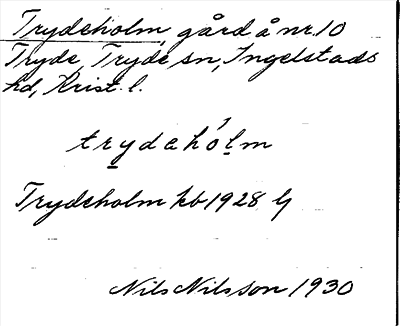 Trydeholm, gård å nr. 10
Tryde, Tryde sn, Ingelstads
hd, Krist. l.
trydehólm
Trydeholm kb 1928 lj
Nils Nilsson 1930